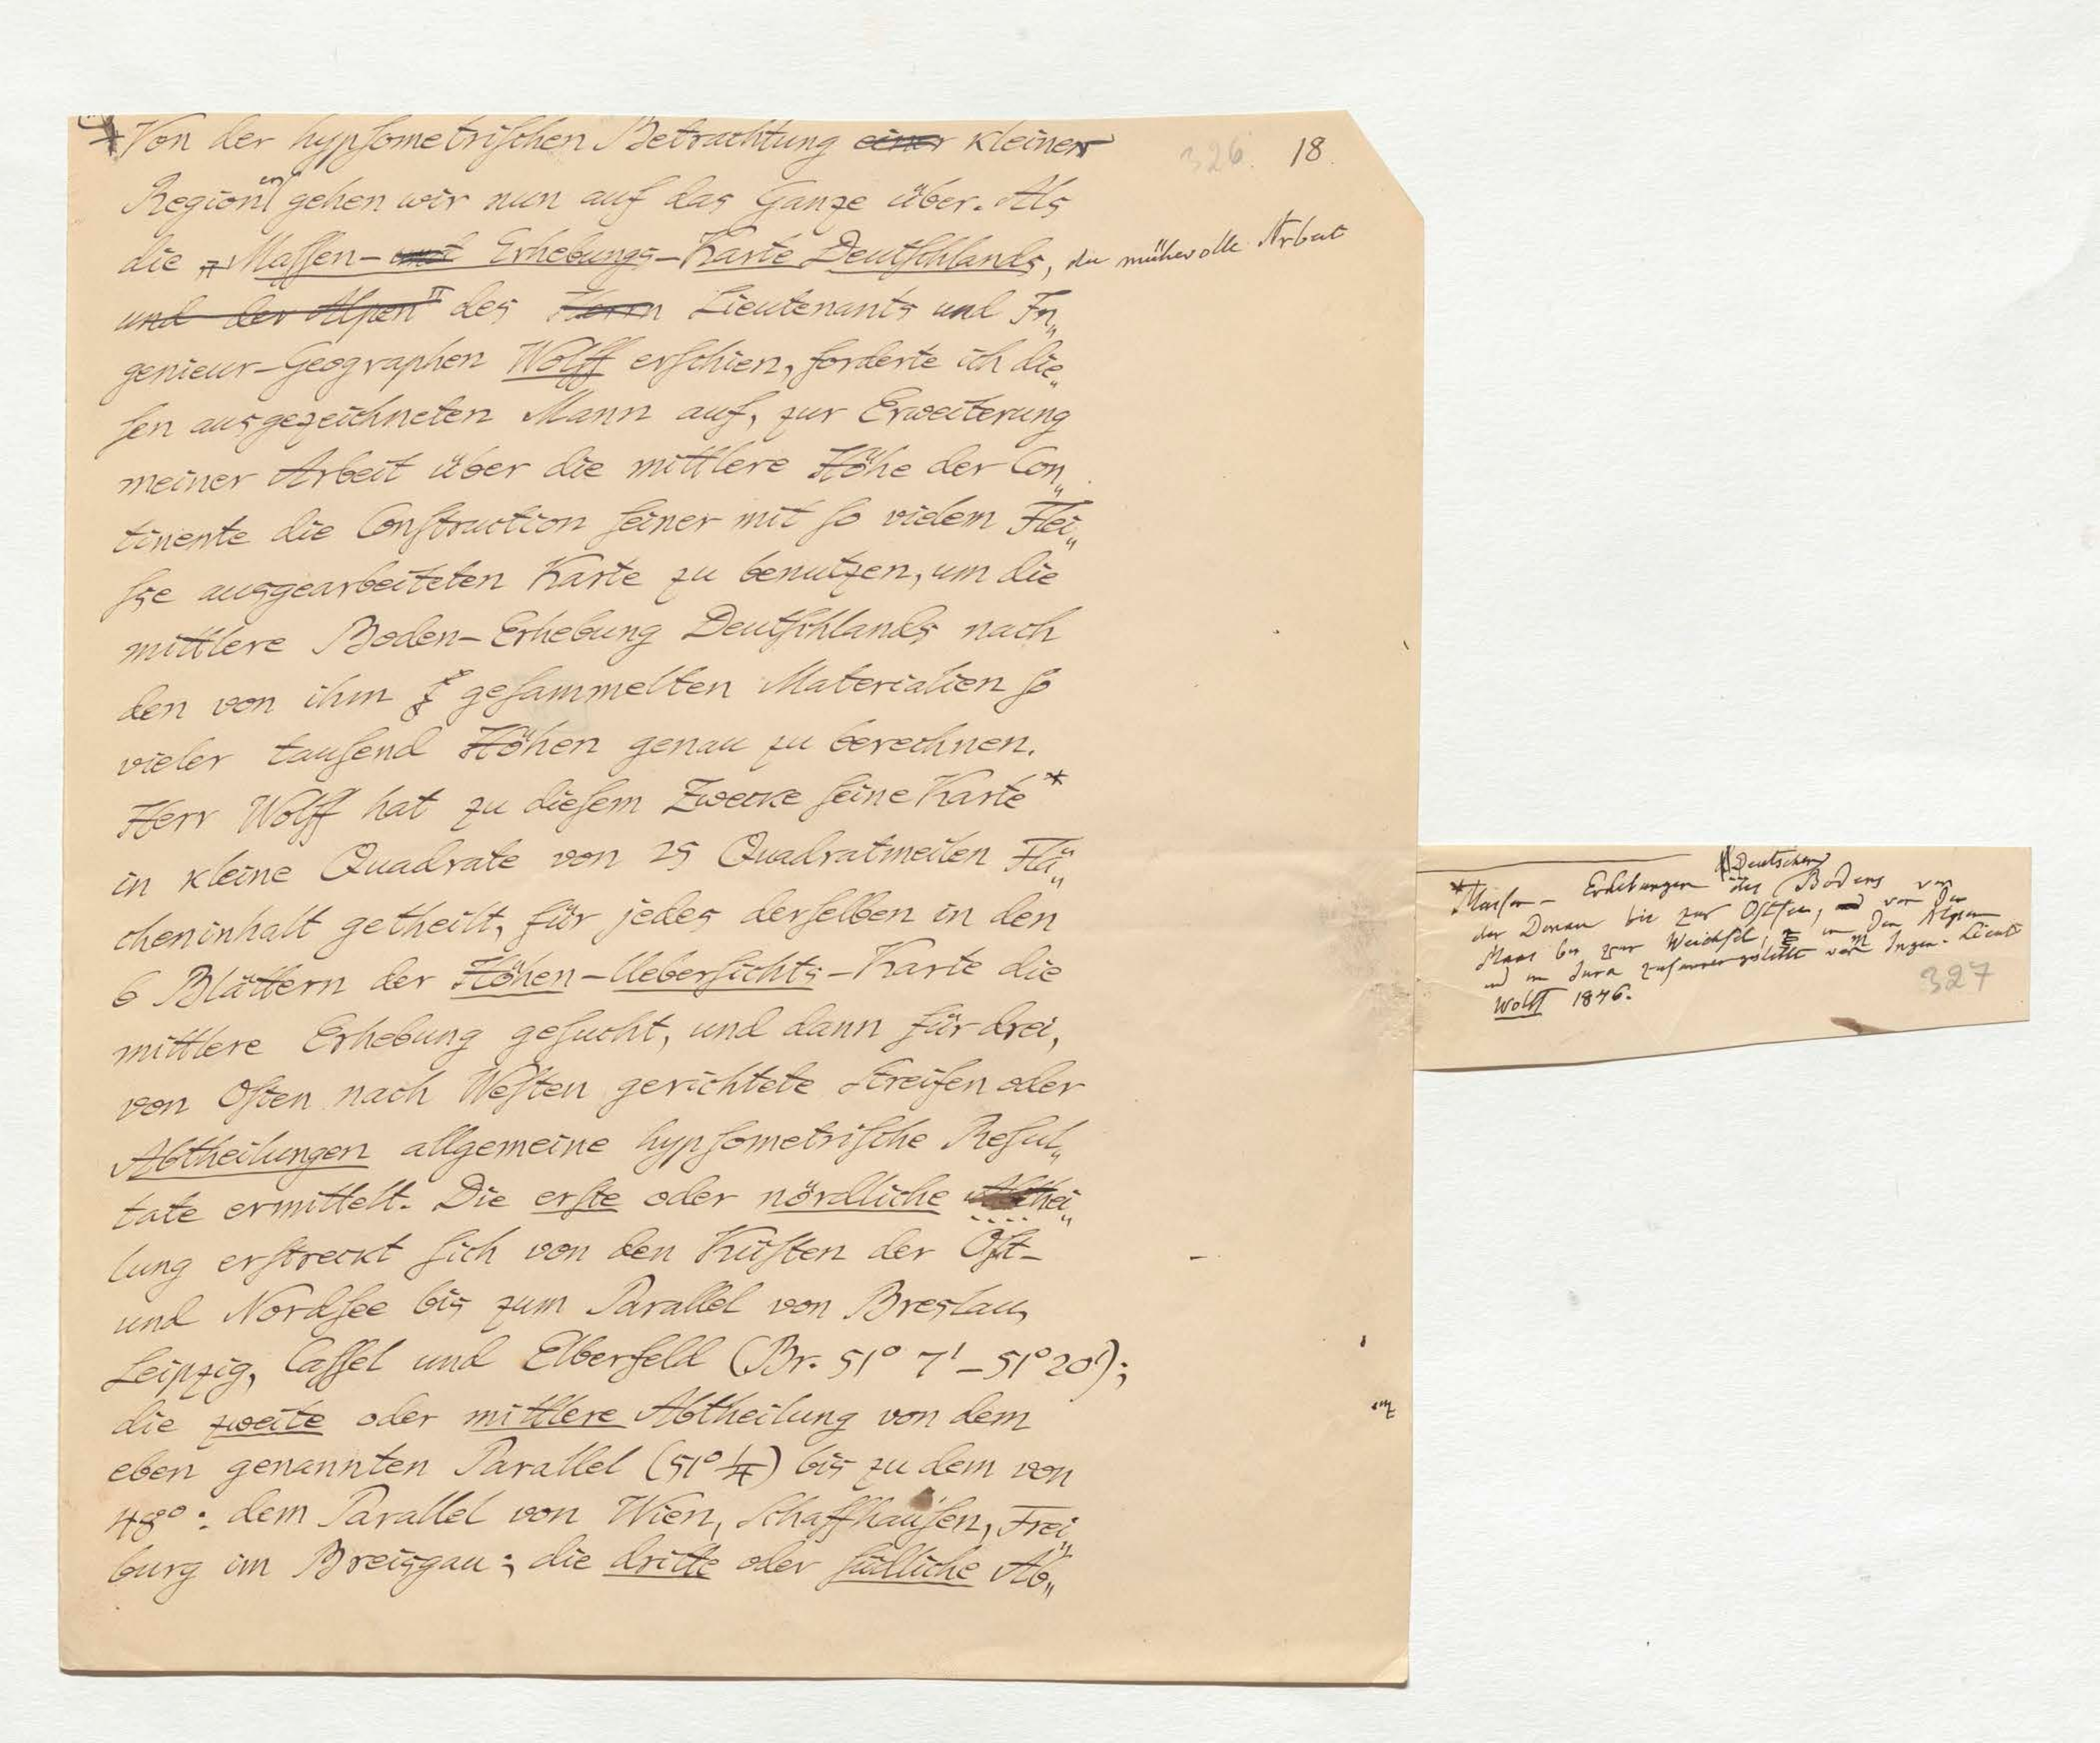 326. 18.
Von der hypsometrischen Betrachtung einer kleiner
Regionen gehen wir nun auf das Ganze über. Als
die „Massen- und Erhebungs-Karte Deutschlands, die mühevolle Arbeit
und der Alpen" des Herrn Lieutenants und In„
genieur-Geographen Wolff erschien, forderte ich die„
sen ausgezeichneten Mann auf, zur Erweiterung
meiner Arbeit über die mittlere Höhe der Con„
tinente die Construction seiner mit so vielem Flei„
sse ausgearbeiteten Karte zu benutzen, um die
mittlere Boden-Erhebung Deutschlands nach
den von ihm gesammelten Materialien so
vieler tausend Höhen genau zu berechnen.
Herr Wolff hat zu diesem Zwecke seine Karte*
in kleine Quadrate von 25 Quadratmeilen Flä„
cheninhalt getheilt, für jedes derselben in den
6 Blättern der Höhen-Uebersichts-Karte die
mittlere Erhebung gesucht, und dann für drei,
von Osten nach Westen gerichtete Streifen oder
Abtheilungen allgemeine hypsometrische Resul„
tate ermittelt. Die erste oder nördliche Abthei„
lung erstreckt sich von den Küsten der Ost-
und Nordsee bis zum Parallel von Breslau,
Leipzig, Cassel und Elberfeld (Br. 51° 7' – 51° 20');
die zweite oder mittlere Abtheilung von dem
eben genannten Parallel (51° 1/4) bis zu dem von
48°: dem Parallel von Wien, Schaffhausen, Frei„
burg im Breisgau; die dritte oder südliche Ab„
*Massen-Erhebungen des Deutschen Bodens von
der Donau bis zur Ostsee, und von der
Maas bis zur Weichsel, in den Alpen
und im Jura zusammengestellt vom Ingen. Lieut.
Wolff 1846.
327